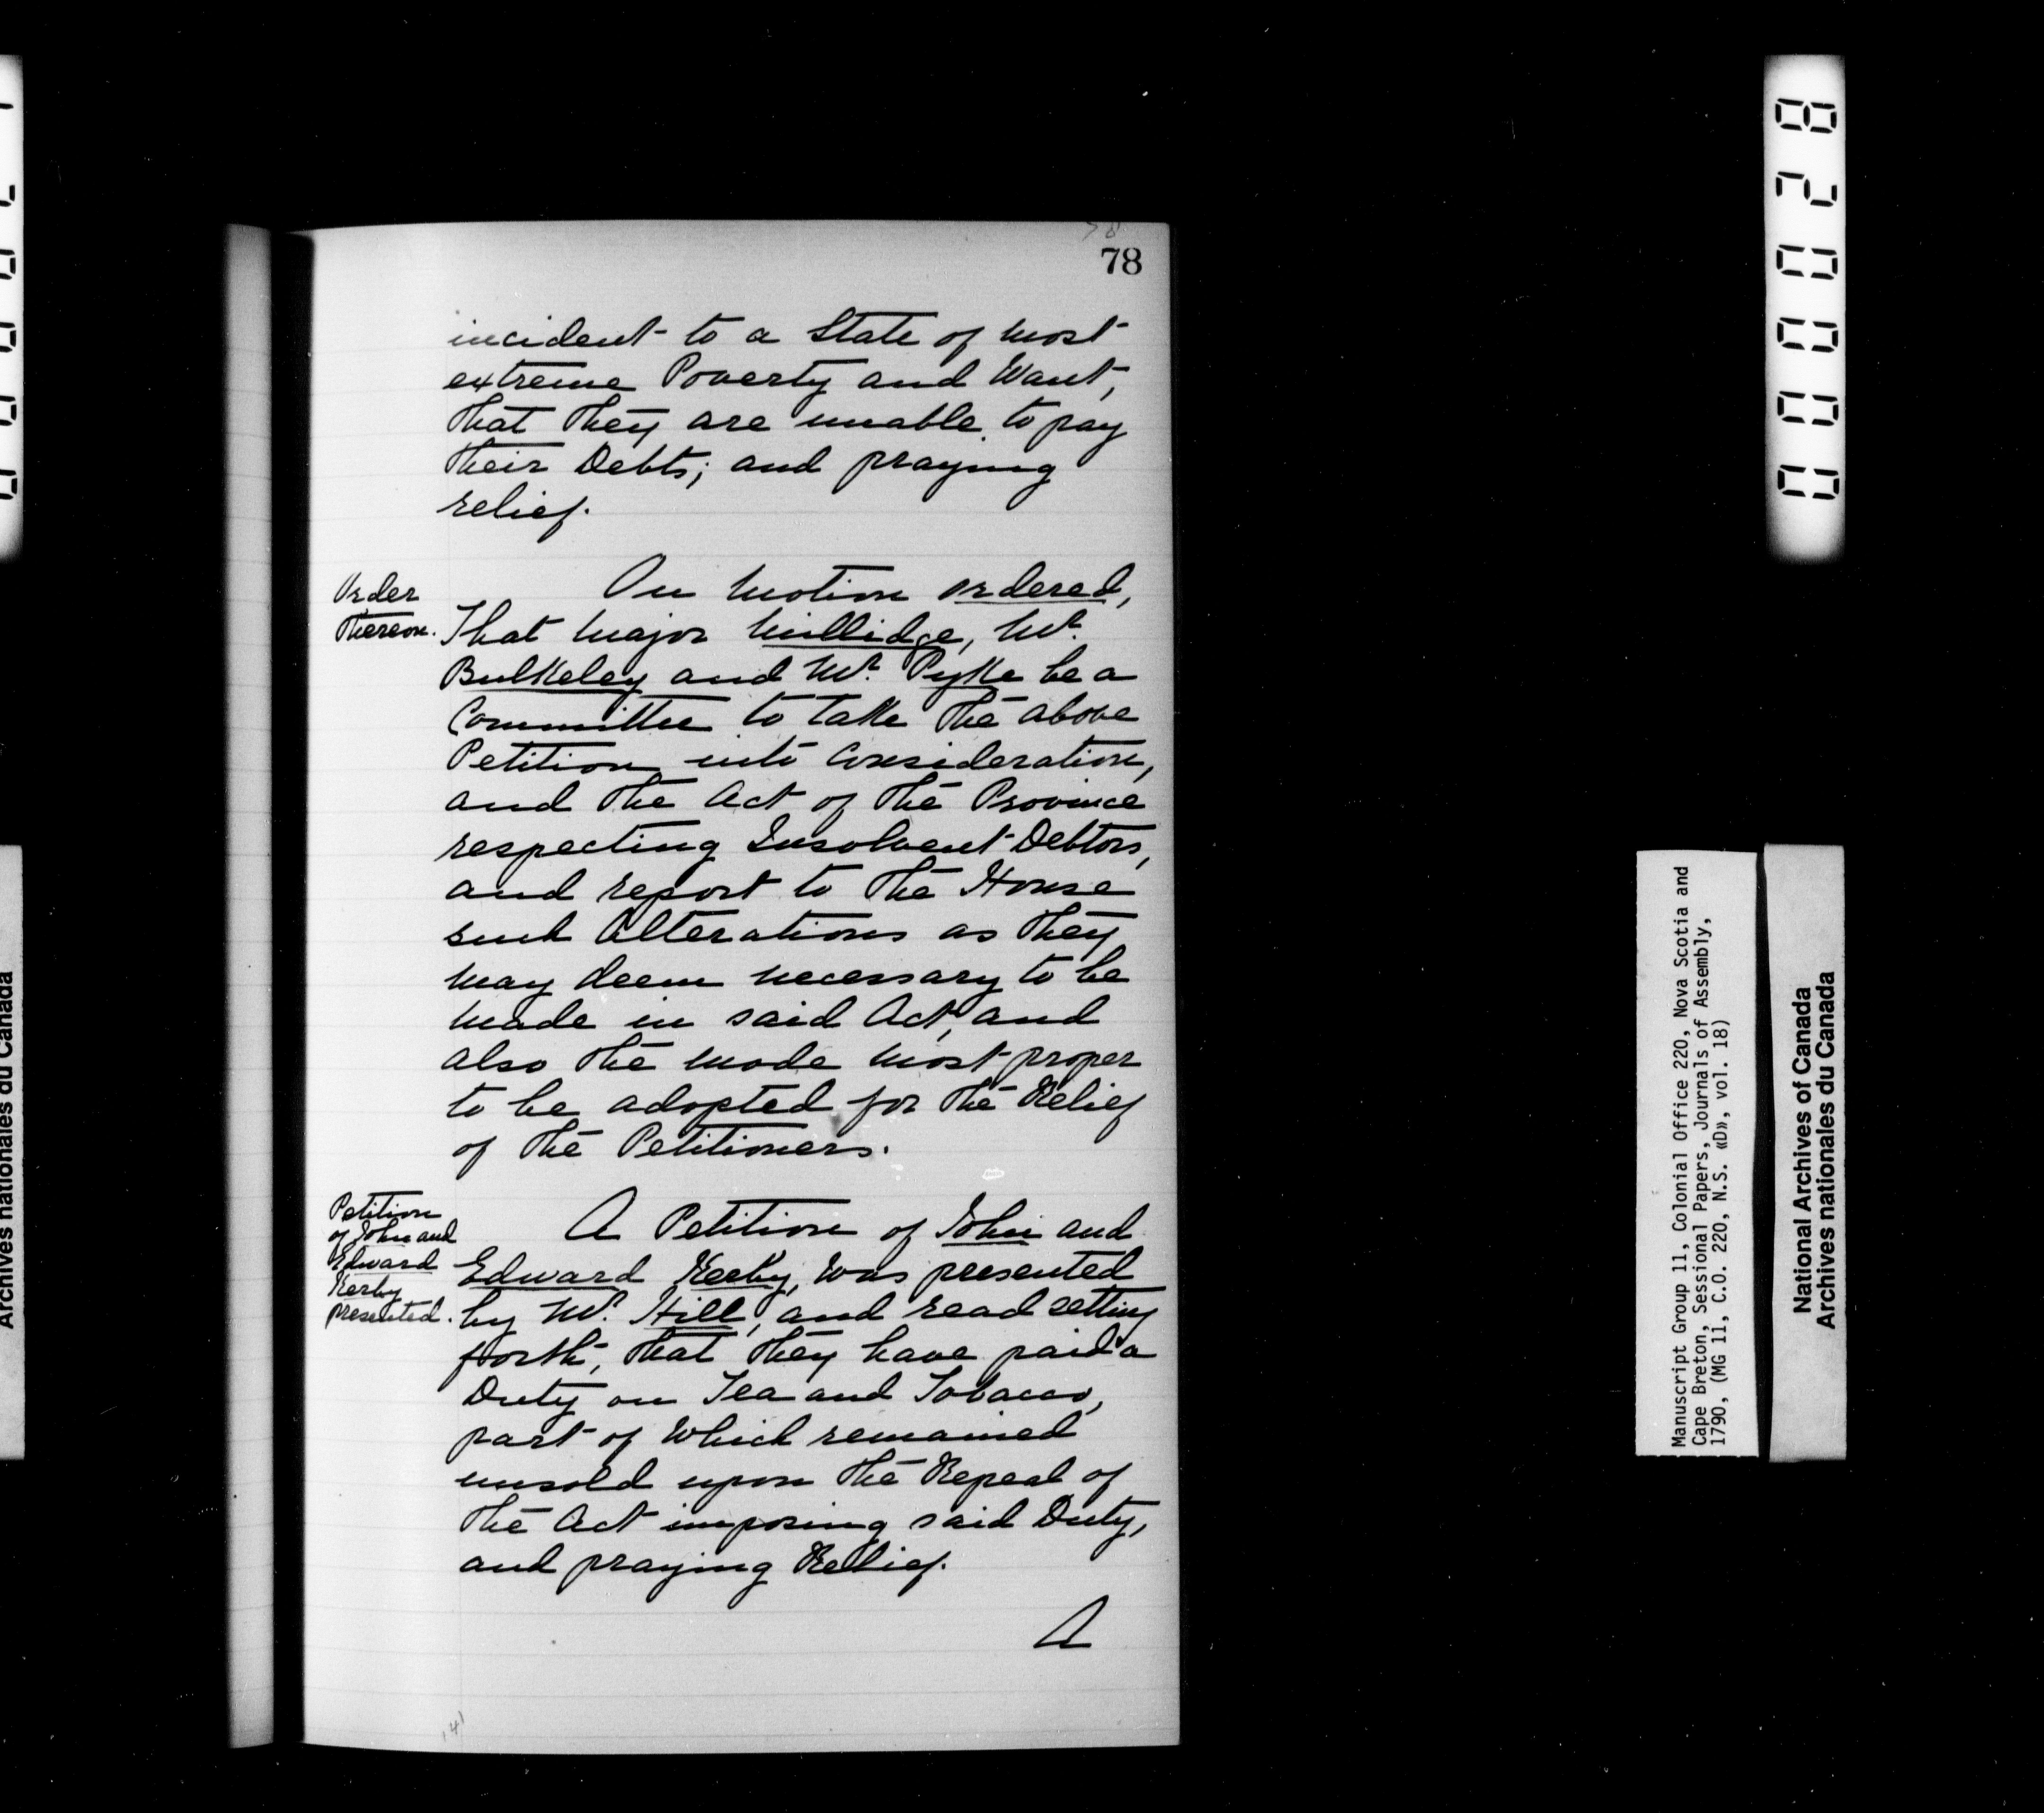 78
78
incident to a State of most
extreme Poverty and Want,
that they are unable to pay
their Debts; and praying
relief.
Order
thereon.
On Motion ordered,
That Major Millidge, Mr.
Bulkeley and Mr. Pyke be a
Committee to take the above
Petition into Consideration,
and the Act of the Province
respecting Insolvent Debtors,
and report to the House
such Alterations as they
may deem necessary to be
made in said Act, and
also the mode most proper
to be adopted for the Relief
of the Petitioners.
Petition
of John and
Edward
Kerby
presented.
A Petition of John and
Edward Kerby, was presented
by Mr. Hill, and read setting
forth, that they have paid a
Duty on Tea and Tobacco,
part of which remained
unsold upon the Repeal of
the Act imposing said Duty,
and praying Relief.
A
141
000028
Manuscript Group 11, Colonial Office 220, Nova Scotia and
Cape Breton, Sessional Papers, Journals of Assembly,
1790, (MG 11, C.O. 220, N.S. «D», vol. 18)
National Archives of Canada
Archives nationales du Canada
Archives nationales du Canada